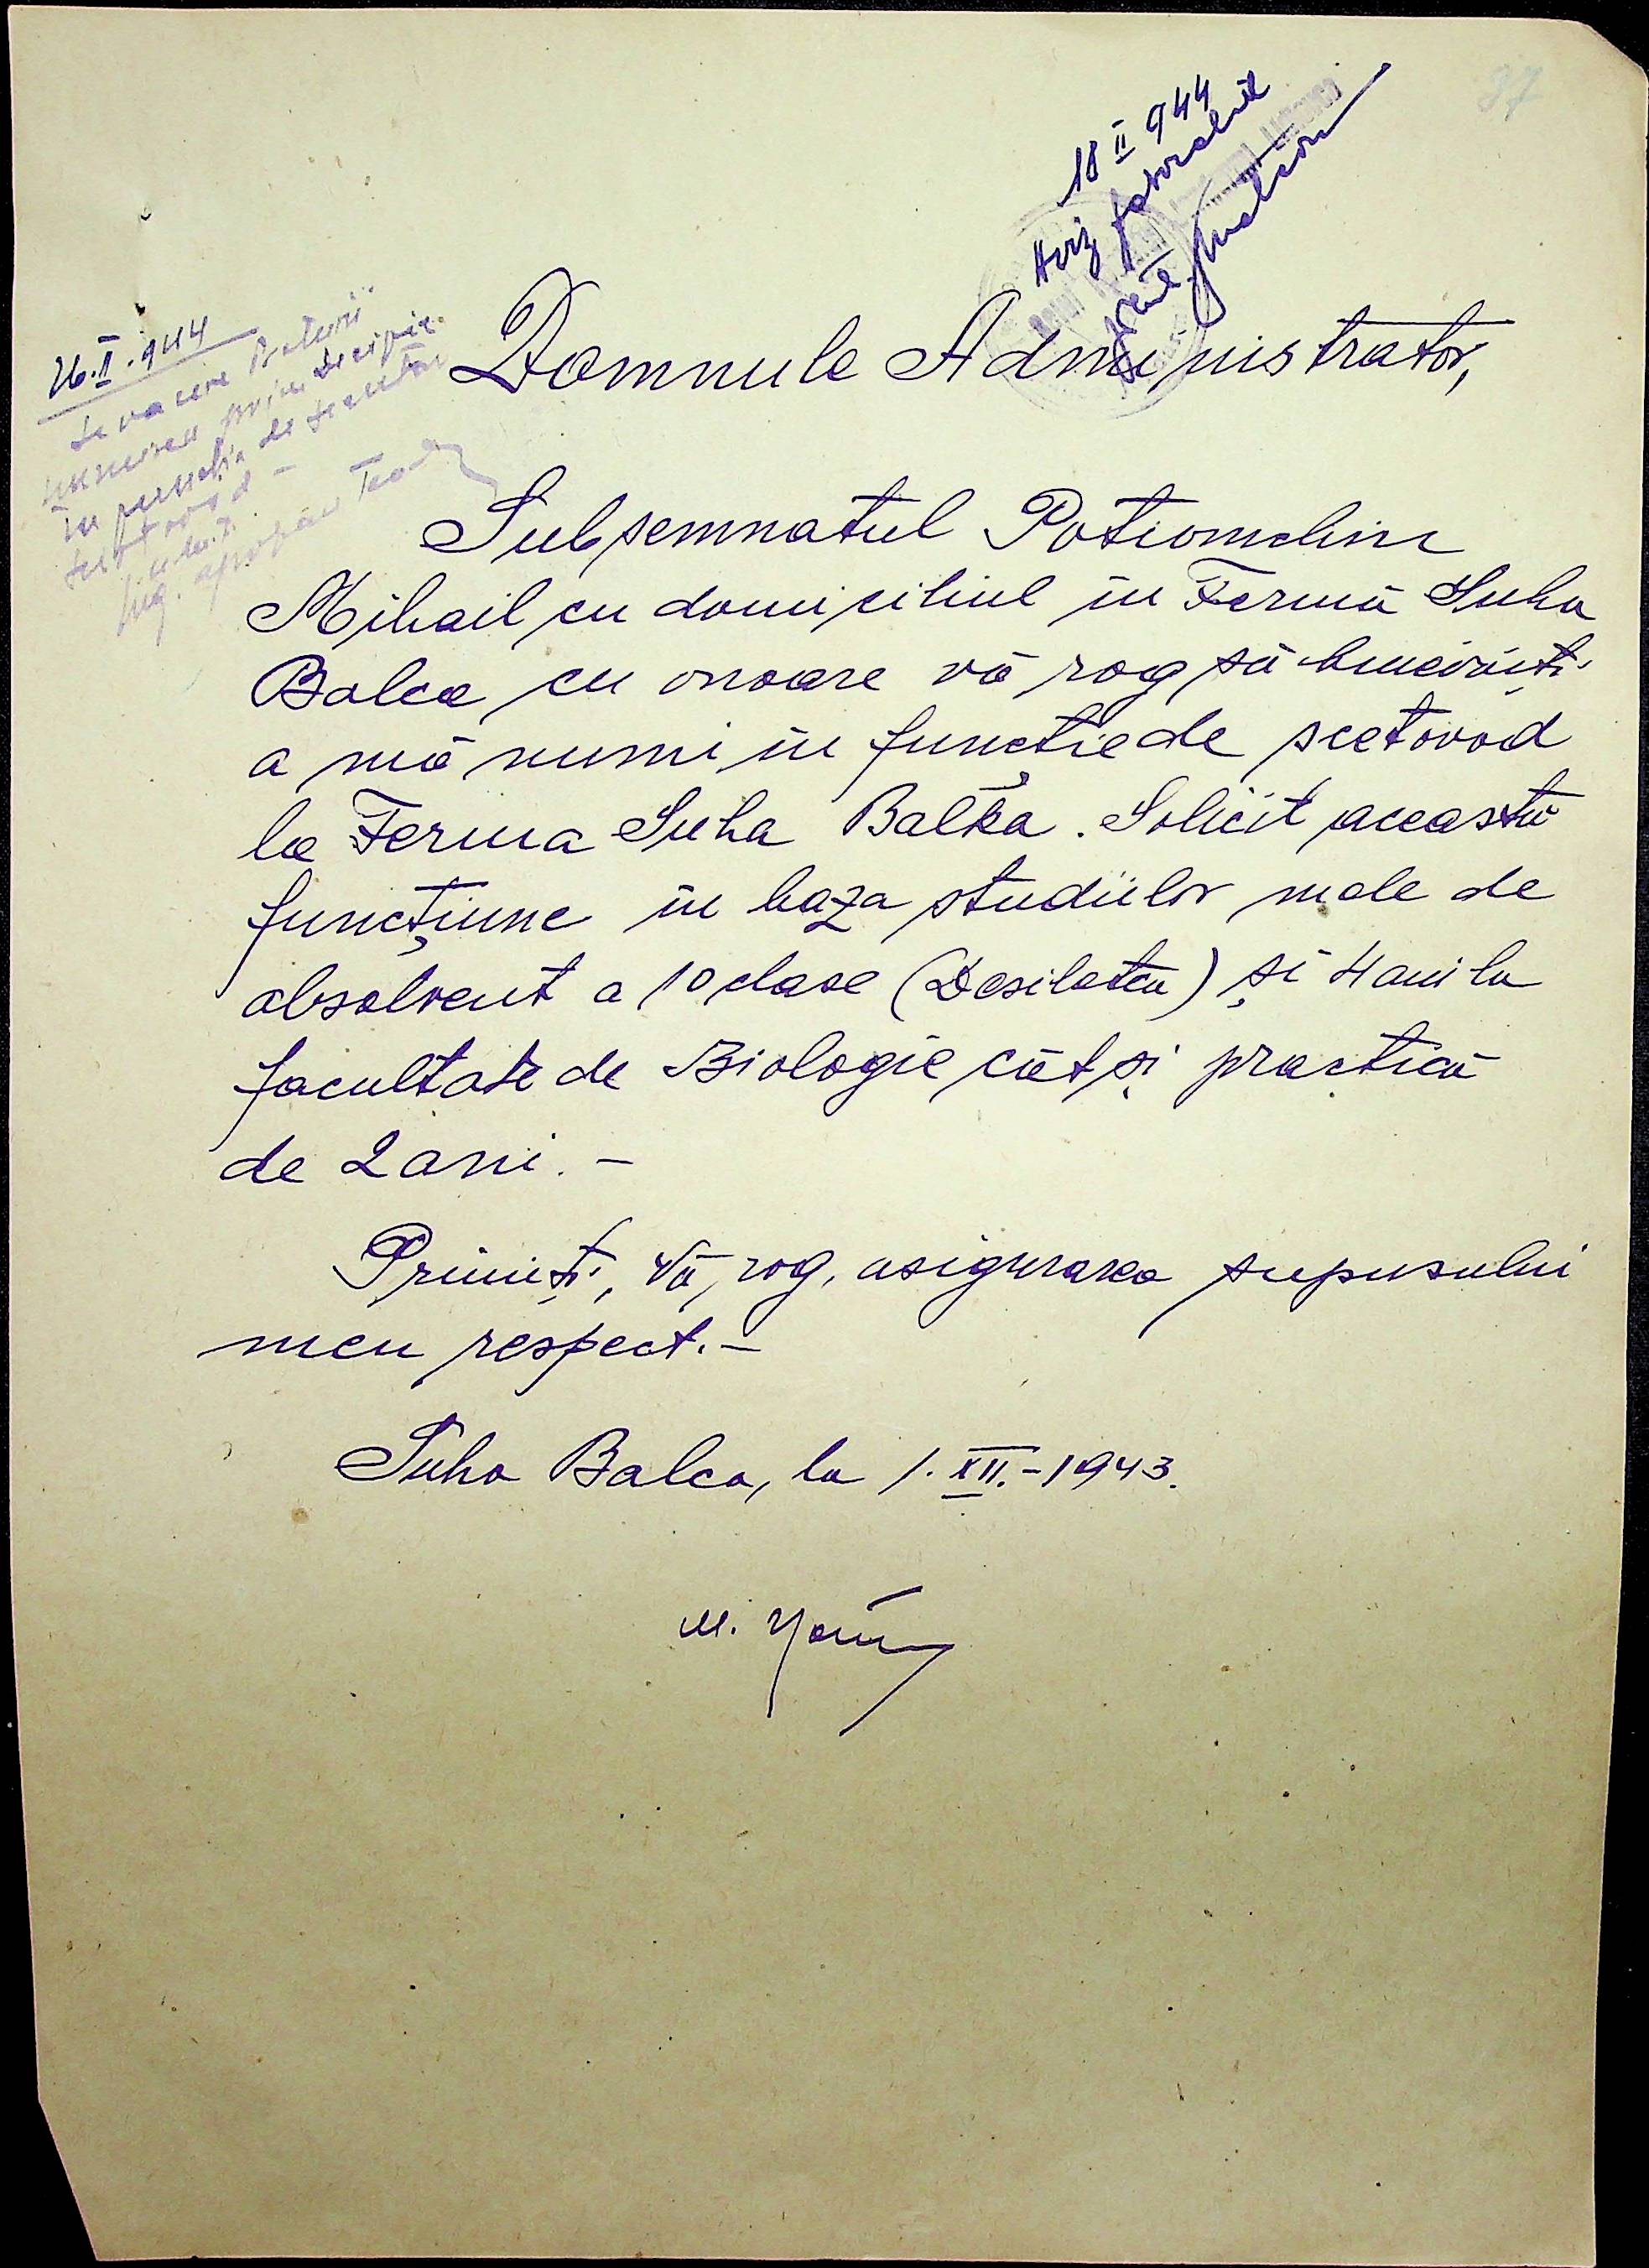 37
18 II 944
Aviz favorabil
26.II.944
Se va cere Preturii
numirea prin decizie
în funcția de
Domnule Administrator,
Subsemnatul Potiomchin
Mihail cu domiciliul în Fermă Suha
Balca, cu onoare vă rog să binevoiți
a mă numi în funcție de scotovod
la Ferma Suha Balka. Solicit această
funcțiune în baza studiilor mele de
absolvent a 10 clase (Desiletca) și 4 ani la
facultate de Biologie cât și practică
de 2 ani. -
Primiți, Vă rog, asigurarea supusului
meu respect. -
Suha Balca, la 1. XII. - 1943.
M.